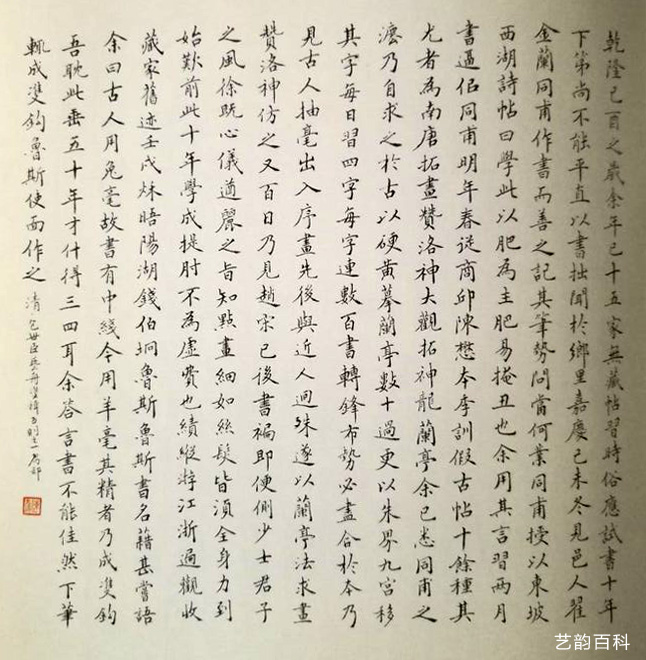 乾隆己酉之歲余年已十五家無藏帖習時俗應試書十年
下第尚不能平直以書拙聞於鄉里嘉慶己未冬見邑人翟
金蘭同甫作書而善之記其筆勢問當何業同甫授以東坡
西湖詩帖曰學此以肥為主肥易掩丑也余用其言習兩月
書逼佀同甫明年春從商邱陳懋本季訓假古帖十餘種其
尤者為南唐拓畫贊洛神大觀拓神龍蘭亭余已悉同甫之
灋乃自求之於古以硬黃摹蘭亭數十過更以朱界九宮移
其字每日習四字每字連數百書轉鋒布勢必盡合於本乃
見古人抽毫出入序畫先後與近人迥殊遂以蘭亭法求畫
贊洛神仿之又百日乃見趙宋已後書褊即便側少士君子
之風徐既心儀遒麗之旨知點畫細如絲髮皆須全身力到
始歎前此十年學成提肘不為虛費也績縱游江浙遍觀收
藏家舊迹壬戌秌晤陽湖錢伯坰魯斯魯斯書名藉甚嘗語
余曰古人用兔毫故書有中綫今用羊毫其精者乃成雙鉤
吾耽此垂五十年才什得三四耳余答言書不能佳然下筆
輒成雙鉤魯斯使面作之 清包世臣藝舟雙楫
艺韵百科